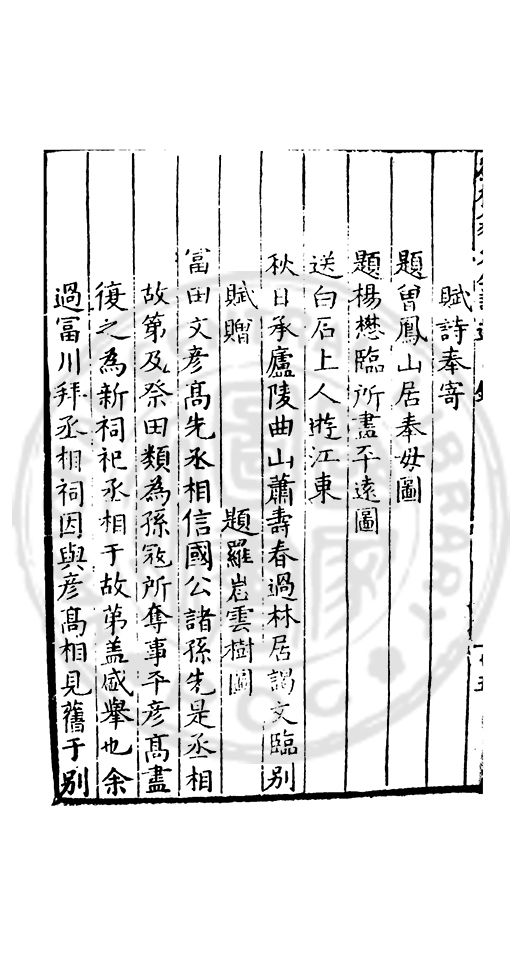 賦詩奉寄
題曾鳳山居奉母圖
題楊懋臨所畫平遠圖
送白石上人遊江東
秋日承廬陵曲山蕭壽春過林居謁文臨別
賦贈 題羅岩雲樹圖
富田文彥高先丞相信國公諸孫先是丞相
故第及祭田類為孫寇所奪事平彥高盡
復之為新祠祀丞相于故第盖盛舉也余
過富川拜丞相祠因與彥高相見舊于别